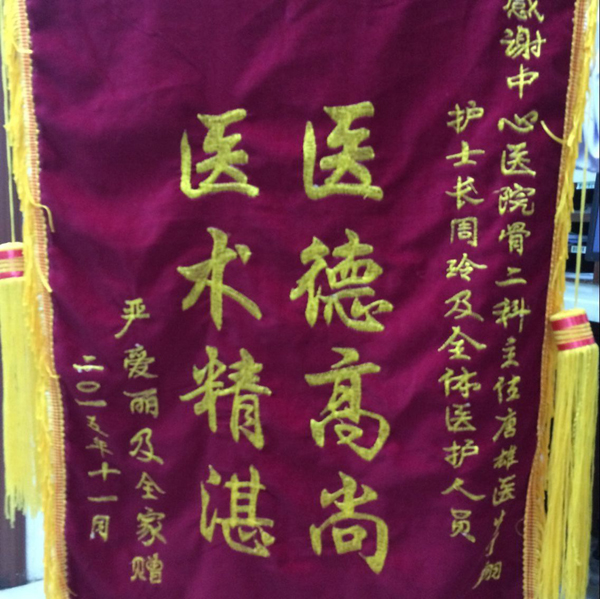 感谢中心医院骨二科主任唐雄医
护士长周玲及全体医护人员
医德高尚
医术精湛
严爱丽及全家赠
二〇一五年十一月